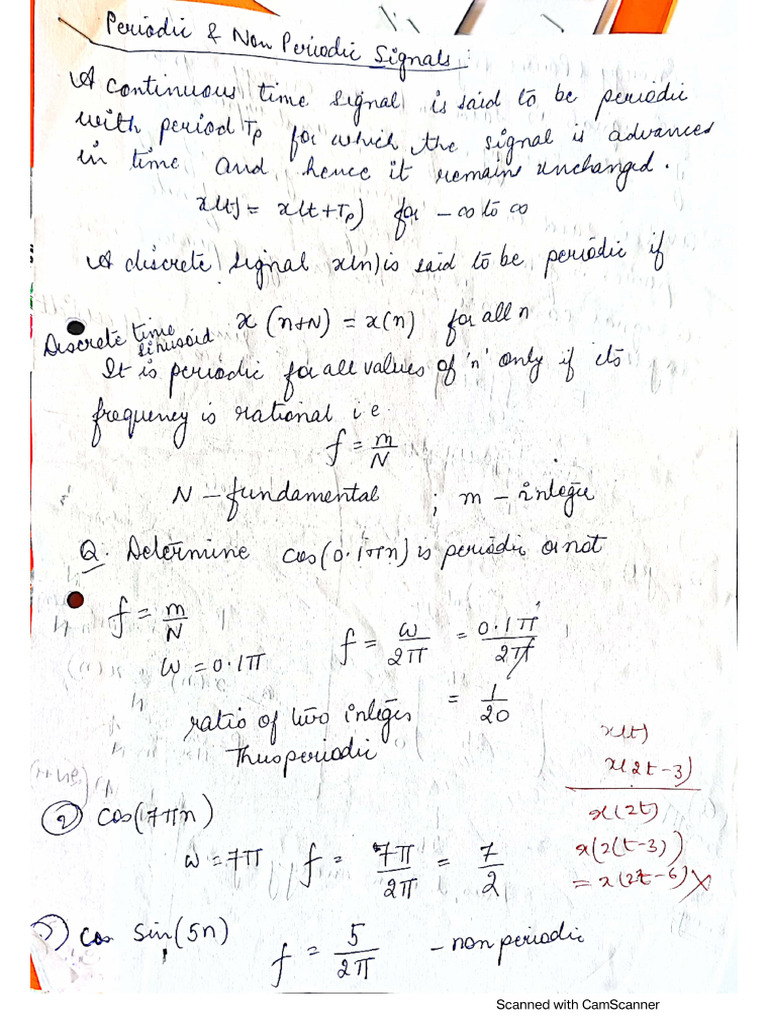 Periodic & Non Periodic Signals :
A continuous time signal is said to be periodic
with period Tp for which the signal is advances
in time and hence it remain unchanged.
x(t) = x(t+Tp) for -∞ to ∞
A discrete signal x(n) is said to be periodic if
x (n+N) = x(n) for all n
Discrete time
sinusoid
It is periodic for all values of 'n' only if its
frequency is rational i.e
f = m/N
N - fundamental ; m - integer
Q. Determine cos(0.1πn) is periodic or not
f = m/N
ω = 0.1π f = ω/2π = 0.1π/2π
= 1/20
ratio of two integers
Thus periodic
x(t)
x(2t-3)
x(2t)
x(2(t-3))
= x(2t-6) X
② cos(7πn)
ω = 7π f = 7π/2π = 7/2
③ cos Sin(5n) f = 5/2π - non periodic
Scanned with CamScanner